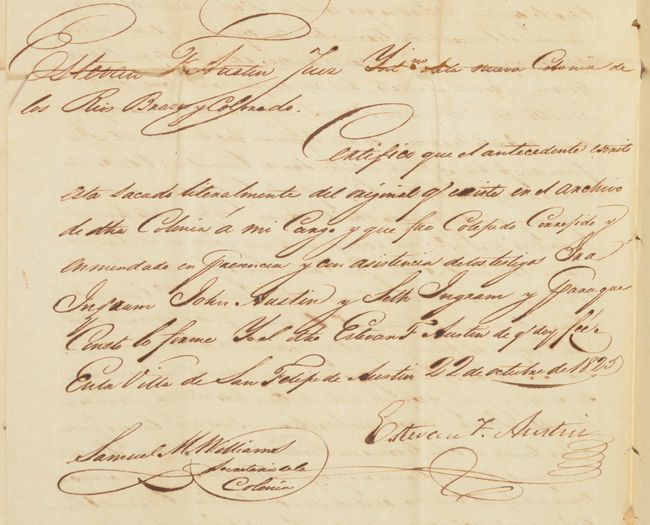 Estevan F. Austin Juez Yntno dela nueva Colonia de
los Rios Brazos y Colorado.
Certifico que el antecedente escrito
esta sacado literalmente del original q.e existe en el archivo
de dha Colonia á mi Cargo y que fue Cotejado Corregido y
enmendado en presencia y con asistencia delos testigos Ira
Ingram John Austin y Seth Ingram y para que
Conste lo firme Yo el dho Estevan F. Austin de q.e doy feé.
En la Villa de San Felipe de Austin 22 de octubre de 1825
Estevan F. Austin
Samuel M. Williams
Secretario de la
Colonia